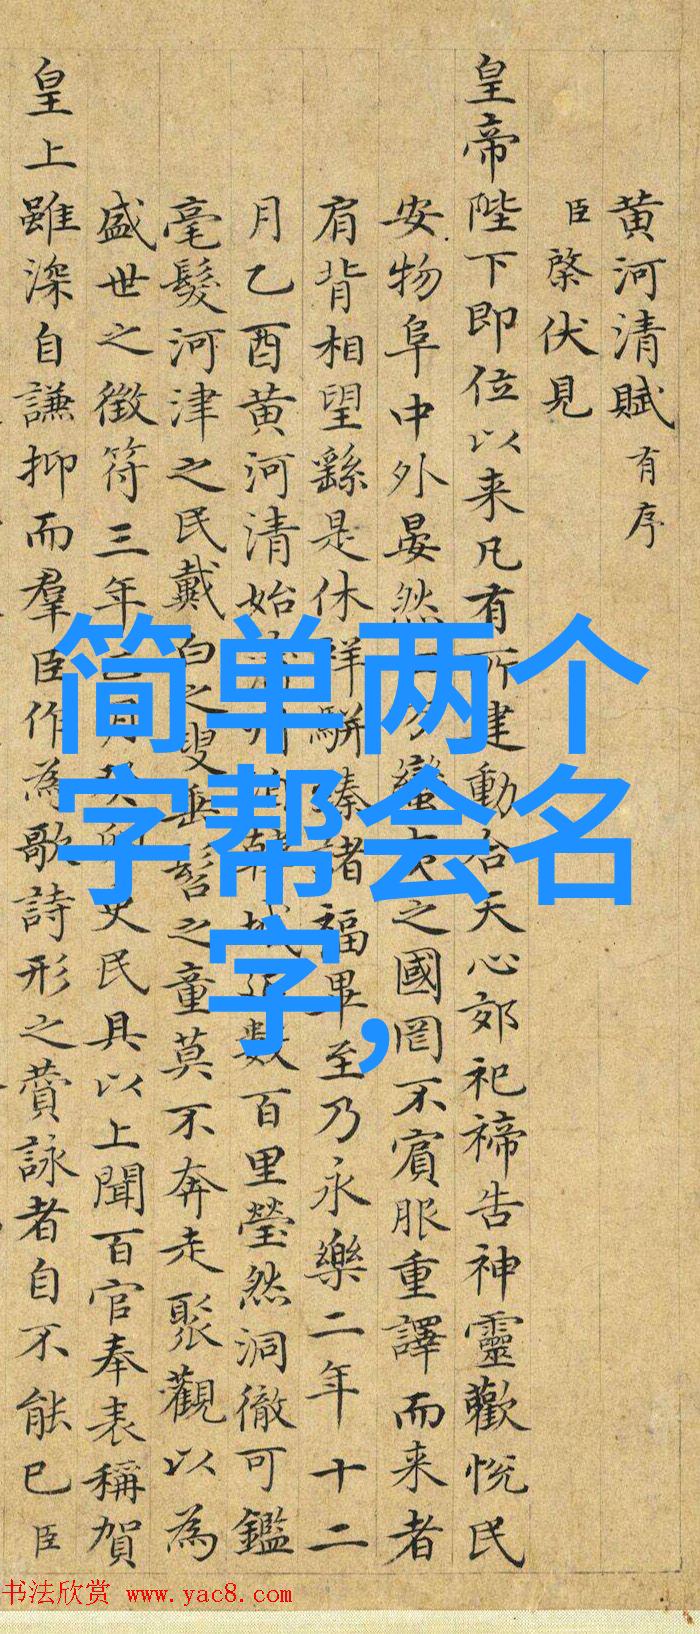 黄河清賦 有序
臣棨伏見
皇帝陛下即位以来凡有所建動合天心郊祀禘告神靈歡悅民
安物阜中外晏然方蠻之國罔不賓服重譯而来者
肩背相望繇是休祥駢臻諸福畢至乃永樂二年十二
月乙酉黄河清始韓城数百里瑩然洞徹可鑑
毫髮河津之民戴白之叟垂髫之童莫不奔走聚觀以為
盛世之徵符三年月癸卯史民具以上聞百官奉表稱賀
皇上雖深自謙抑而羣臣作為歌詩形之賛詠者自不能已臣
简单两个
字帮会名
字,
书法欣赏 www.yac8.com